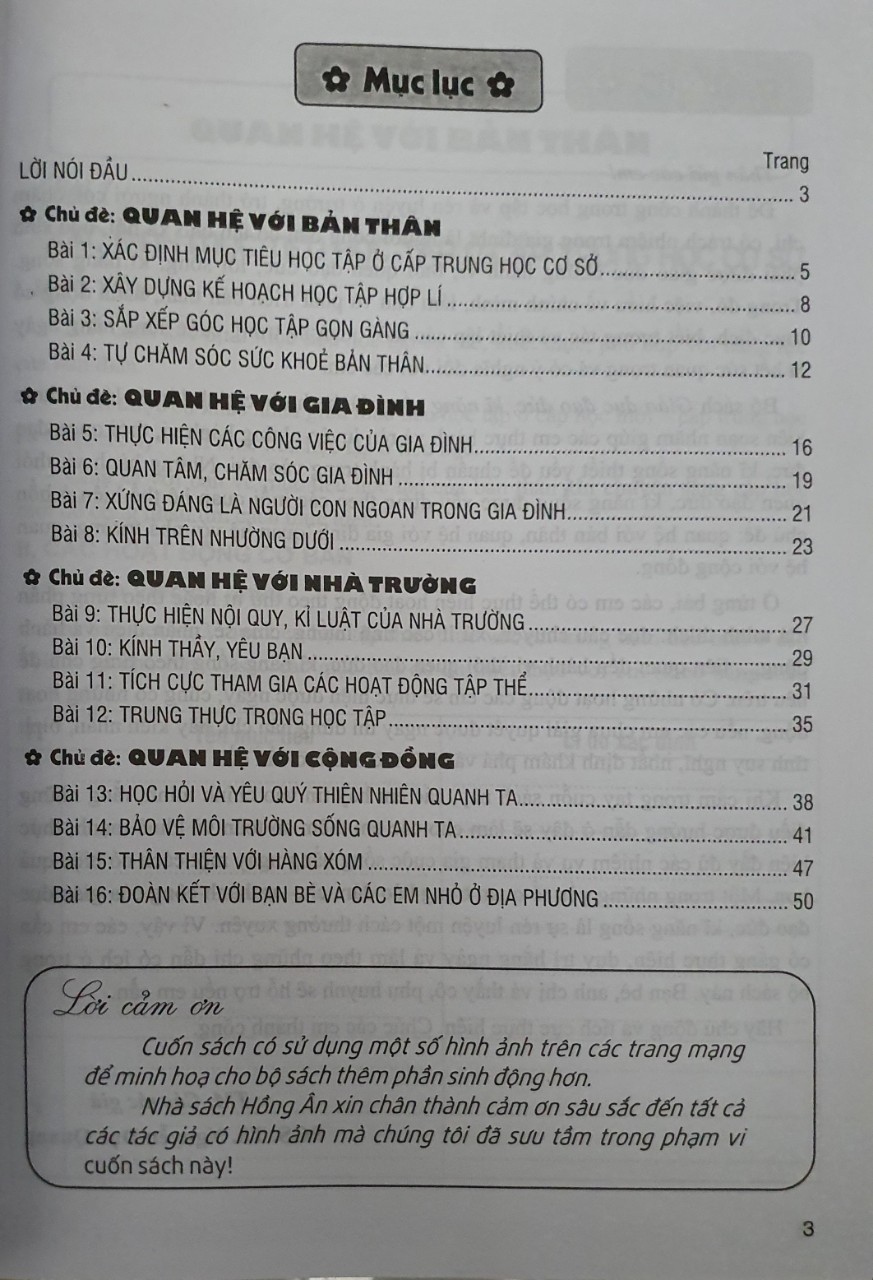 ✿ Mục lục ✿
Trang
LỜI NÓI ĐẦU........ 3
✿ Chủ đề: QUAN HỆ VỚI BẢN THÂN
Bài 1: XÁC ĐỊNH MỤC TIÊU HỌC TẬP Ở CẤP TRUNG HỌC CƠ SỞ........ 5
Bài 2: XÂY DỰNG KẾ HOẠCH HỌC TẬP HỢP LÍ ........ 8
Bài 3: SẮP XẾP GÓC HỌC TẬP GỌN GÀNG ........ 10
Bài 4: TỰ CHĂM SÓC SỨC KHOẺ BẢN THÂN........ 12
✿ Chủ đề: QUAN HỆ VỚI GIA ĐÌNH
Bài 5: THỰC HIỆN CÁC CÔNG VIỆC CỦA GIA ĐÌNH........ 16
Bài 6: QUAN TÂM, CHĂM SÓC GIA ĐÌNH ........ 19
Bài 7: XỨNG ĐÁNG LÀ NGƯỜI CON NGOAN TRONG GIA ĐÌNH........ 21
Bài 8: KÍNH TRÊN NHƯỜNG DƯỚI ........ 23
✿ Chủ đề: QUAN HỆ VỚI NHÀ TRƯỜNG
Bài 9: THỰC HIỆN NỘI QUY, KỈ LUẬT CỦA NHÀ TRƯỜNG ........ 27
Bài 10: KÍNH THẦY, YÊU BẠN ........ 29
Bài 11: TÍCH CỰC THAM GIA CÁC HOẠT ĐỘNG TẬP THỂ........ 31
Bài 12: TRUNG THỰC TRONG HỌC TẬP........ 35
✿ Chủ đề: QUAN HỆ VỚI CỘNG ĐỒNG
Bài 13: HỌC HỎI VÀ YÊU QUÝ THIÊN NHIÊN QUANH TA........ 38
Bài 14: BẢO VỆ MÔI TRƯỜNG SỐNG QUANH TA ........ 41
Bài 15: THÂN THIỆN VỚI HÀNG XÓM ........ 47
Bài 16: ĐOÀN KẾT VỚI BẠN BÈ VÀ CÁC EM NHỎ Ở ĐỊA PHƯƠNG ........ 50
Lời cảm ơn
Cuốn sách có sử dụng một số hình ảnh trên các trang mạng
để minh hoạ cho bộ sách thêm phần sinh động hơn.
Nhà sách Hồng Ân xin chân thành cảm ơn sâu sắc đến tất cả
các tác giả có hình ảnh mà chúng tôi đã sưu tầm trong phạm vi
cuốn sách này!
3